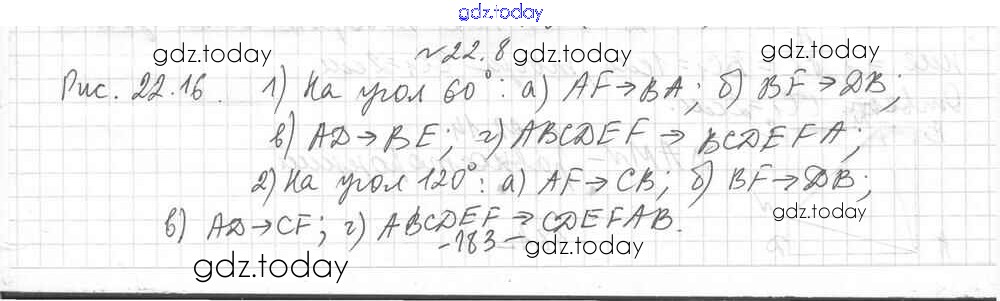 gdz.today
№22.8
gdz.today gdz.today gdz.today
Рис. 22.16. 1) На угол 60°: а) AF→BA; б) BF→DB;
в) AD→BE; г) ABCDEF → BCDEFA;
2) На угол 120°: а) AF→CB; б) BF→DB;
в) AD→CF; г) ABCDEF → CDEFAB.
gdz.today
-183-
gdz.today gdz.today
gdz.today